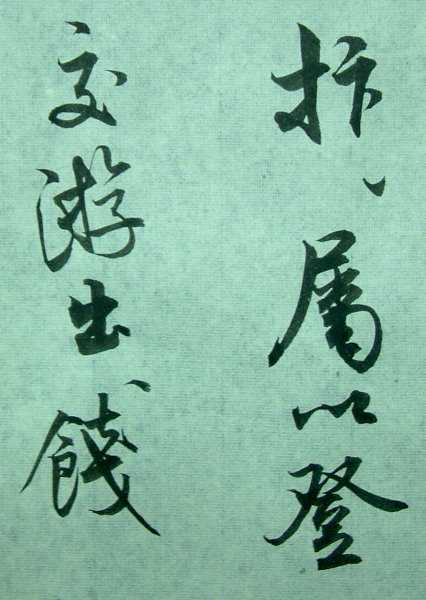 抃、屬以登
交游出餞